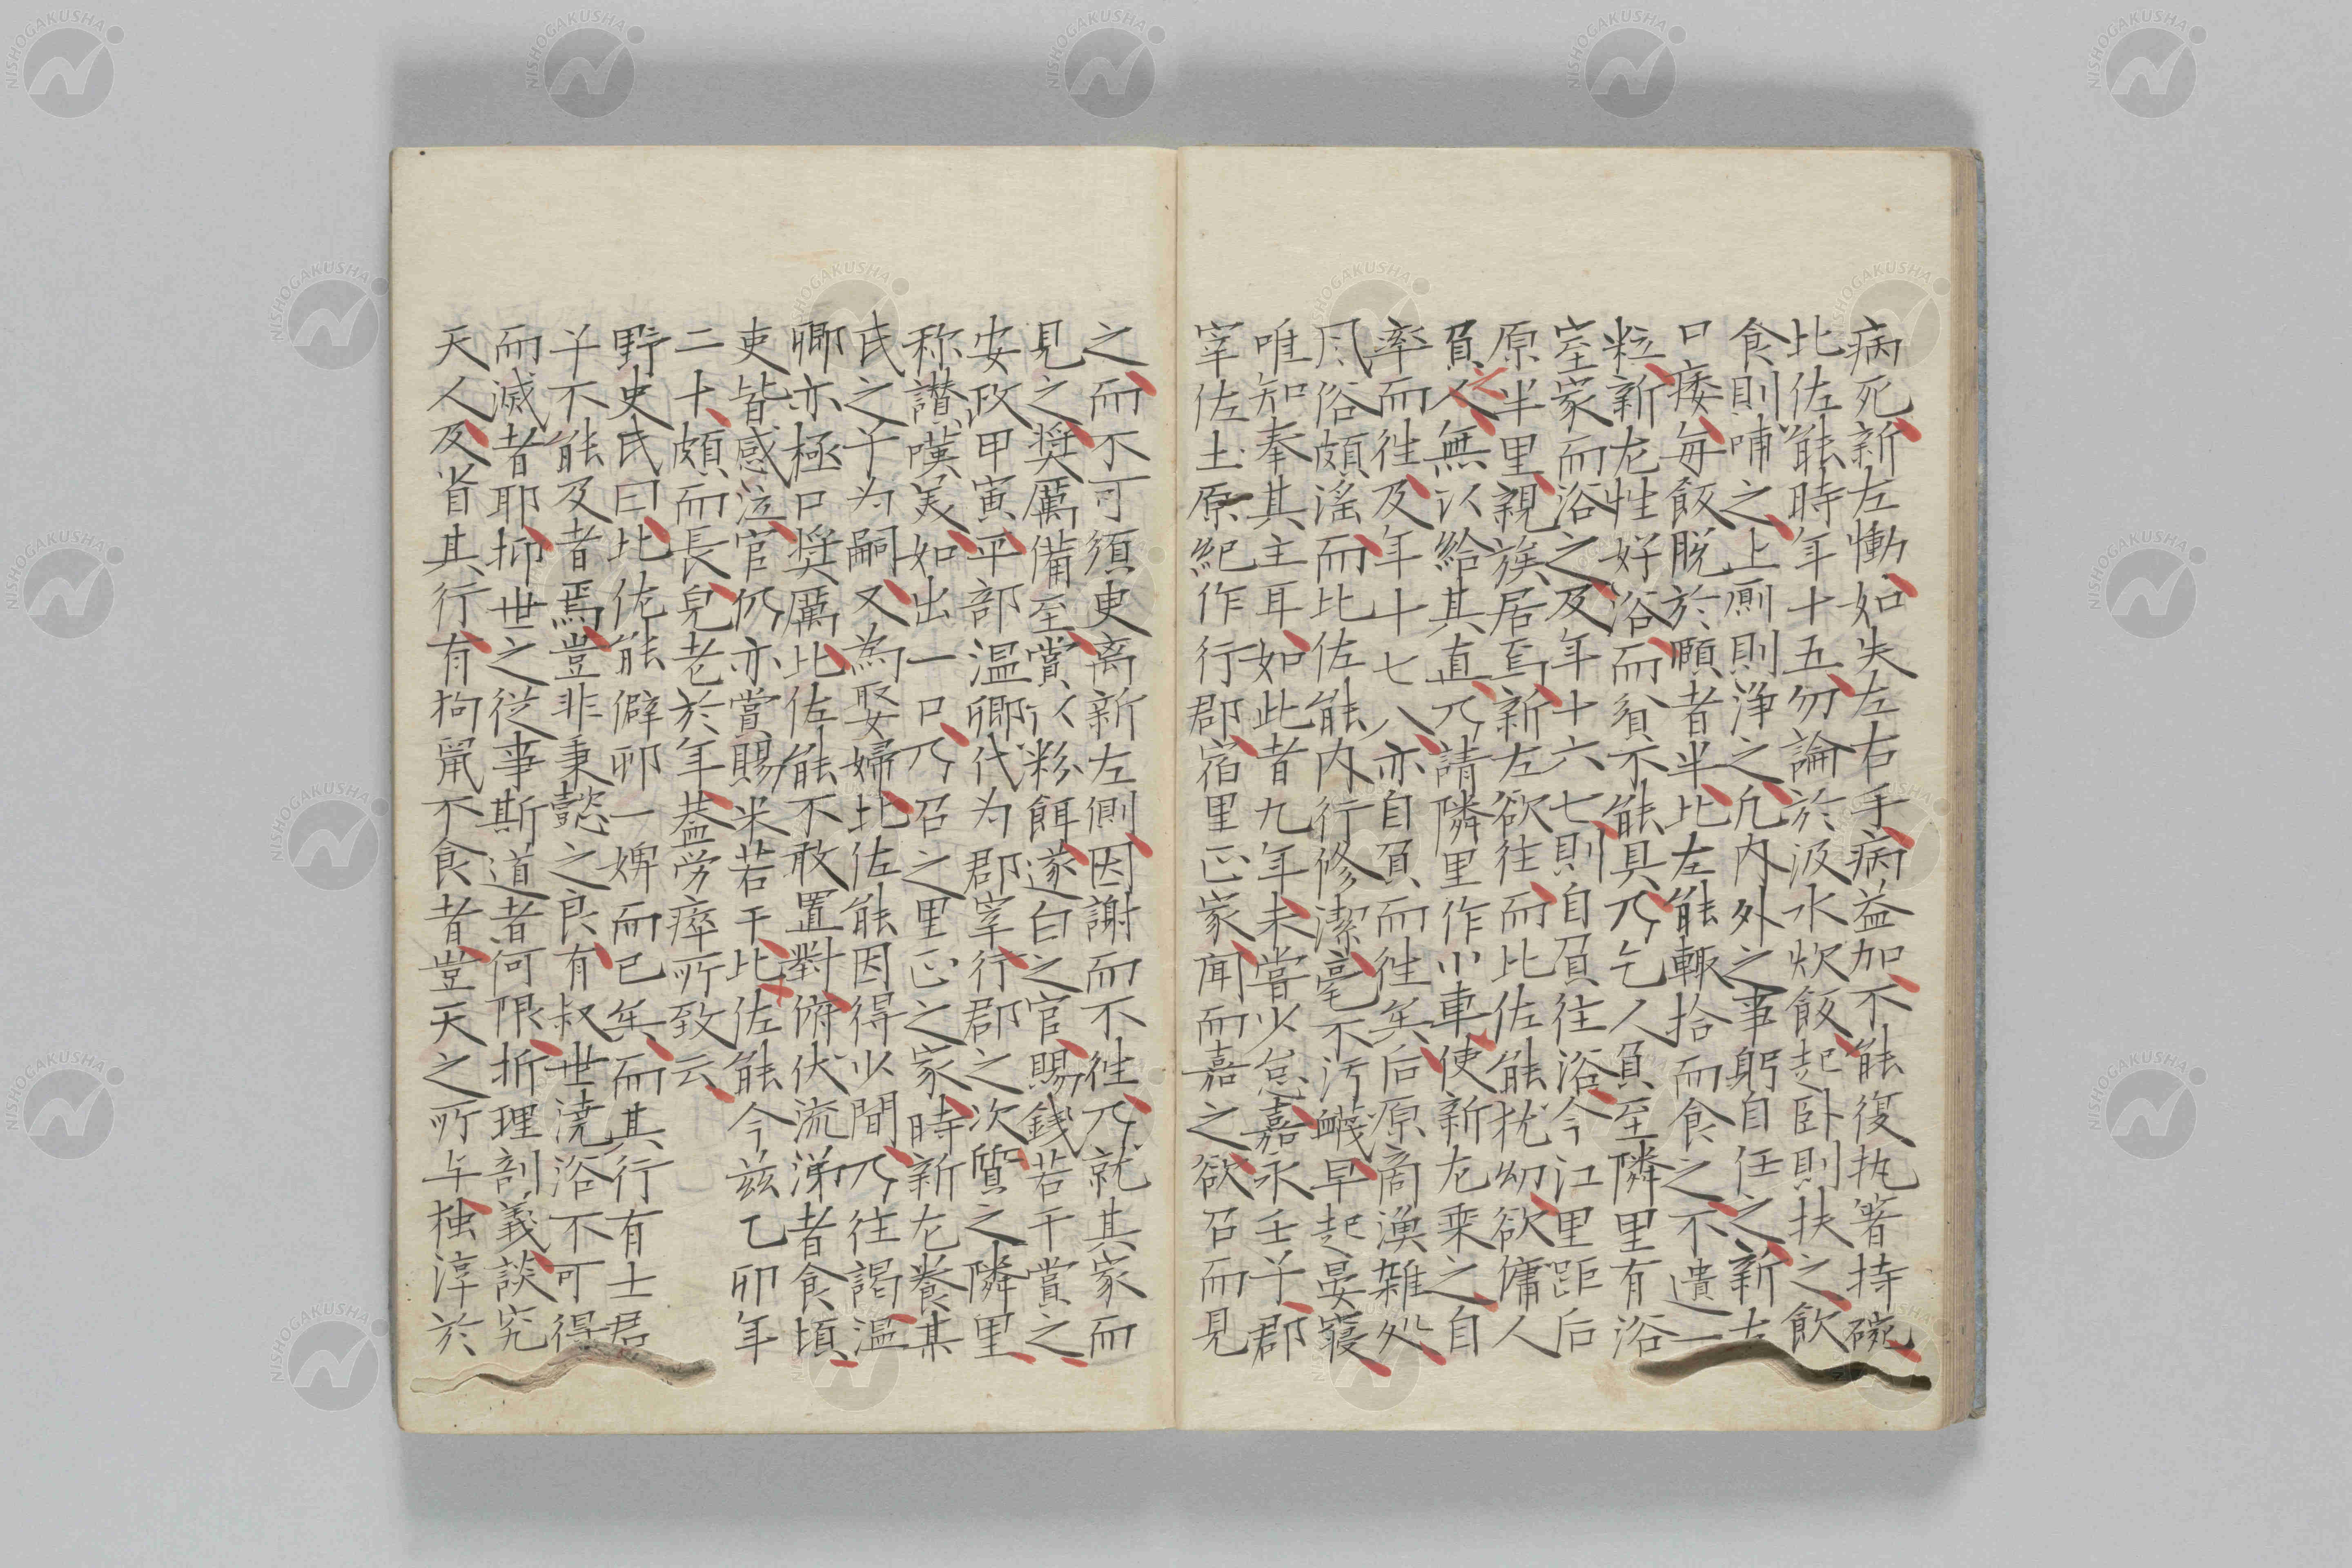 病死新左慟如失左右手病益加不能復执箸持碗
比佐能時年十五勿論於汲水炊飯起卧則扶之飲
食則哺之上厠則浄之凢内外之事躬自任之新左
口痿毎飯脱於頤者半比左能輙拾而食之不遺一
粒新左性好浴而貧不能具乃乞人負至隣里有浴
室家而浴之及年十六七則自負往浴今江里距后
原半里親族居焉新左欲往而比佐能犹幼欲傭人
負之人無以給其直乃請隣里作小車使新左乗之自
率而往及年十七八亦自負而往矣后原商漁雑処
風俗頗滛而比佐能内行修潔毫不汚衊早起晏寝
唯知奉其主耳如此者九年未嘗少怠嘉永壬子郡
宰佐土原紀作行郡宿里正家聞而嘉之欲召而見
之而不可須臾离新左側因謝而不徃乃就其家而
見之奨厲備至賞以粉餌遂白之官賜錢若干賞之
安政甲寅平部温卿代为郡宰行郡之次質之隣里
称讃嘆美如出一口乃召之里正之家時新左養某
氏之子为嗣又為娶婦比佐能因得少間乃往謁温
卿亦極口奨厲比佐能不敢置對俯伏流涕者食頃
吏皆感泣官仍亦賞賜米若干比佐能今兹乙卯年
二十頗而長皃老於年葢労瘁所致云
野史氏曰比佐能僻郷一婢而已矣而其行有士君
子不能及者焉豈非秉懿之良有叔世澆浴不可得
而滅者耶抑世之従事斯道者何限折理剖義談究
天人及省其行有狗鼠不食者豈天之所与独淳於